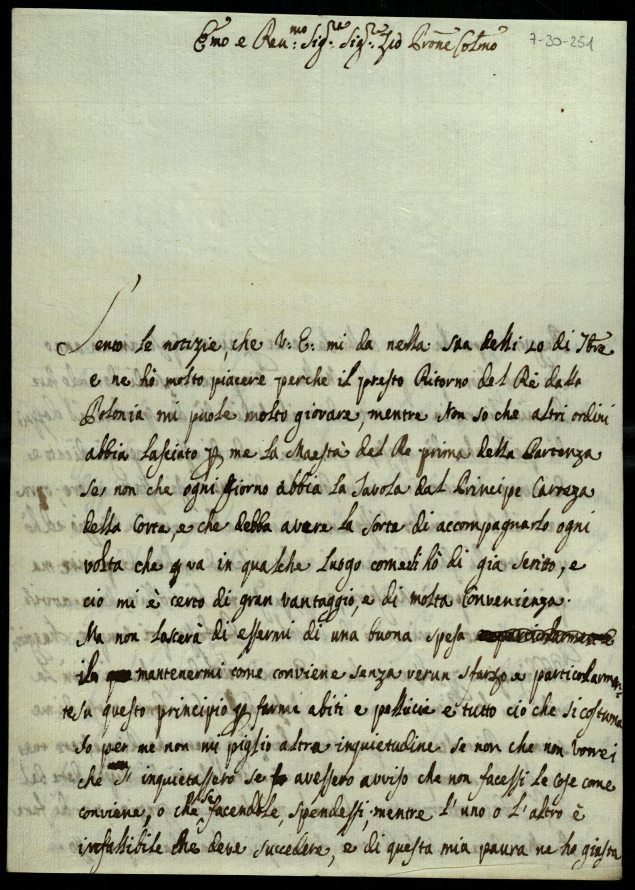 Emo e Reu:mo Sigra Sigre Zio Prone Colmo 7-30-251
Sento le notizie, che V: E: mi da nella sua delli 20 di 7bre
e ne hò molto piacere perche il presto Ritorno del Rè dalla
Polonia mi puole molto giovare, mentre Non so che altri ordini
abbia lasciato p me La Maestà del Re prima della Partenza
se non che ogni Giorno abbia La Tavola dal Principe Carroza
della Corte, e che debba avere la sorte di accompagnarlo ogni
volta che va in qualche luogo come li hò di gia scritto, e
cio mi è certo di gran vantaggio, e di molta Convenienza.
Ma non lascerà di essermi di una buona spesa
il mantenermi come conviene senza verun sfarzo e particolarmen
te su questo principio p farmi abiti e pellicie e tutto ciò che si costuma
Io per me non mi piglio altra inquietudine se non che non vorrei
che si inquietassero se avessero avviso che non facessi le cose come
conviene, o che se facendole, spendessi, mentre l'uno o l'altro è
infallibile che deve succedere, e di questa mia paura ne ho giusta